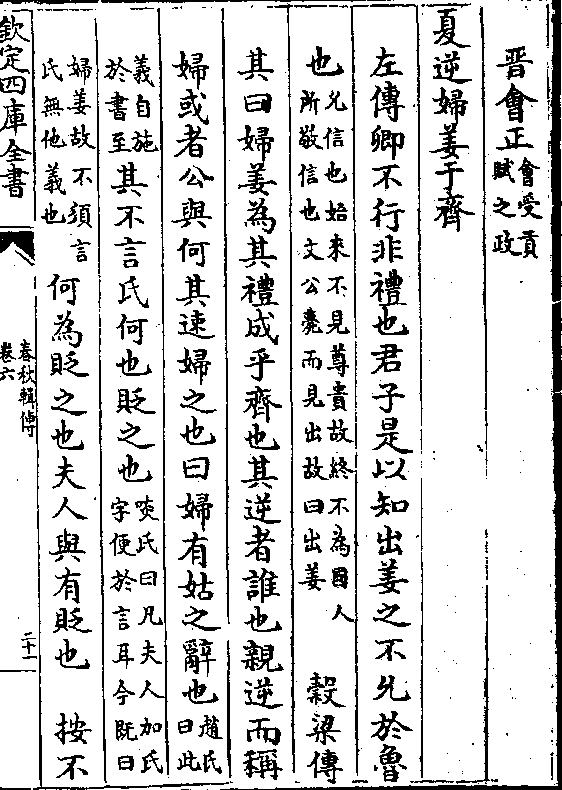 晋會正會受貢賦之政
夏逆婦姜于齊
左傳卿不行非禮也君子是以知出姜之不允於魯
也允信也始來不見尊貴故終不為國人所敬信也文公薨而見出故曰出姜　榖梁傳
其曰婦姜為其禮成乎齊也其逆者誰也親逆而稱
婦或者公與何其速婦之也曰婦有姑之辭也趙氏曰此
義自施於書至其不言氏何也貶之也啖氏曰凡夫人加氏字便於言耳今既曰
婦姜故不須言氏無他義也何為貶之也夫人與有貶也　按不
欽定四庫全書
春秋輯傳
卷六
二十一